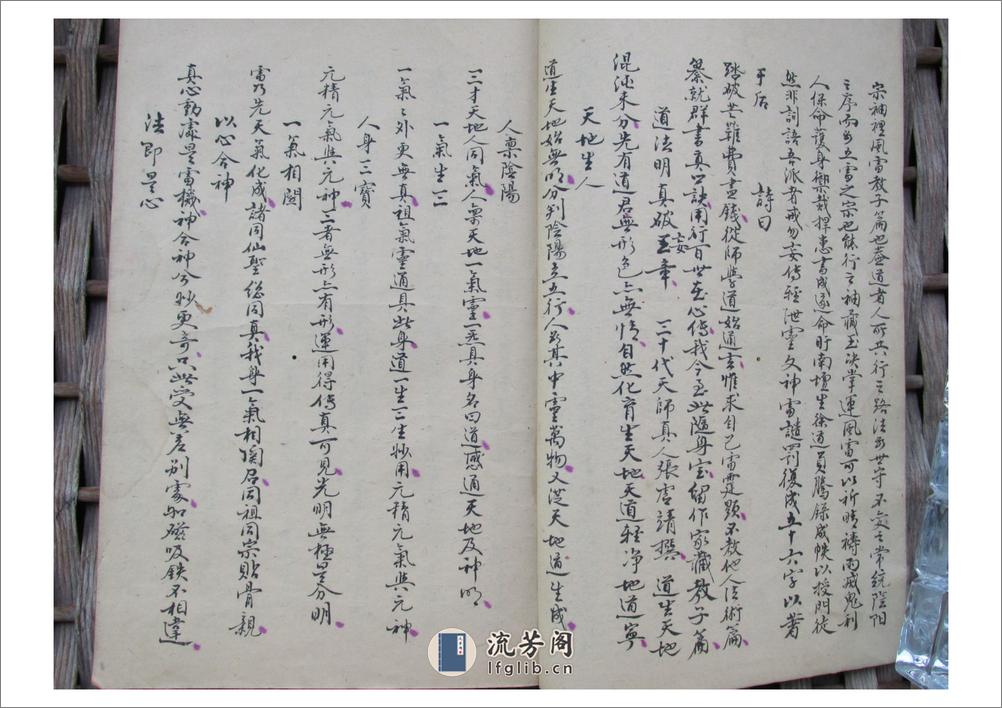 宗袖裡風雷教子篇也蓋道者人所共行之路法為世守不變之常統陰陽
之序而為五雷之宗也能行之袖藏玉决掌運風雷可以祈晴禱雨戒鬼利
人保命護身禦災捍患書成遂命盱南壇生徐道員騰錄成帙以授門徒
然非詞語吾派者戒勿妄傳輕泄靈文神雷譴罰復成五十六字以著
于后 詩曰
踏破芒鞋費盡錢從師學道始通玄惟求自己雷霆顯不教他人法術篇
纂就群書真口訣用行百世在心傳我今至此隨身寶留作家藏教子篇
道法明真破妄章 三十代天師真人張虛靖撰 道生天地
混沌未分先有道君無形色亦無情自然化育生天地天道輕净地道寧
天地生人
道生天地始無明分判陰陽立五行人為其中靈萬物又從天地道生成
人稟陰陽
三才天地人同氣人稟天地一氣靈一炁具身名曰道感通天地及神明
一氣生三
一氣之外更無真祖氣靈通具此身道一生三三生妙用元精元氣與元神
人身三寶
元精元氣與元神三者無形上有形運用得傳真可見光明無極是分明
一氣相関
雷乃先天氣化成諸同仙聖総同真我身一氣相関召同祖同宗貼骨親
以心合神
真心動處是雷機神合神兮妙更奇只此受無差別處如磁吸鉄不相違
法即是心
流芳阁
lfglib.cn